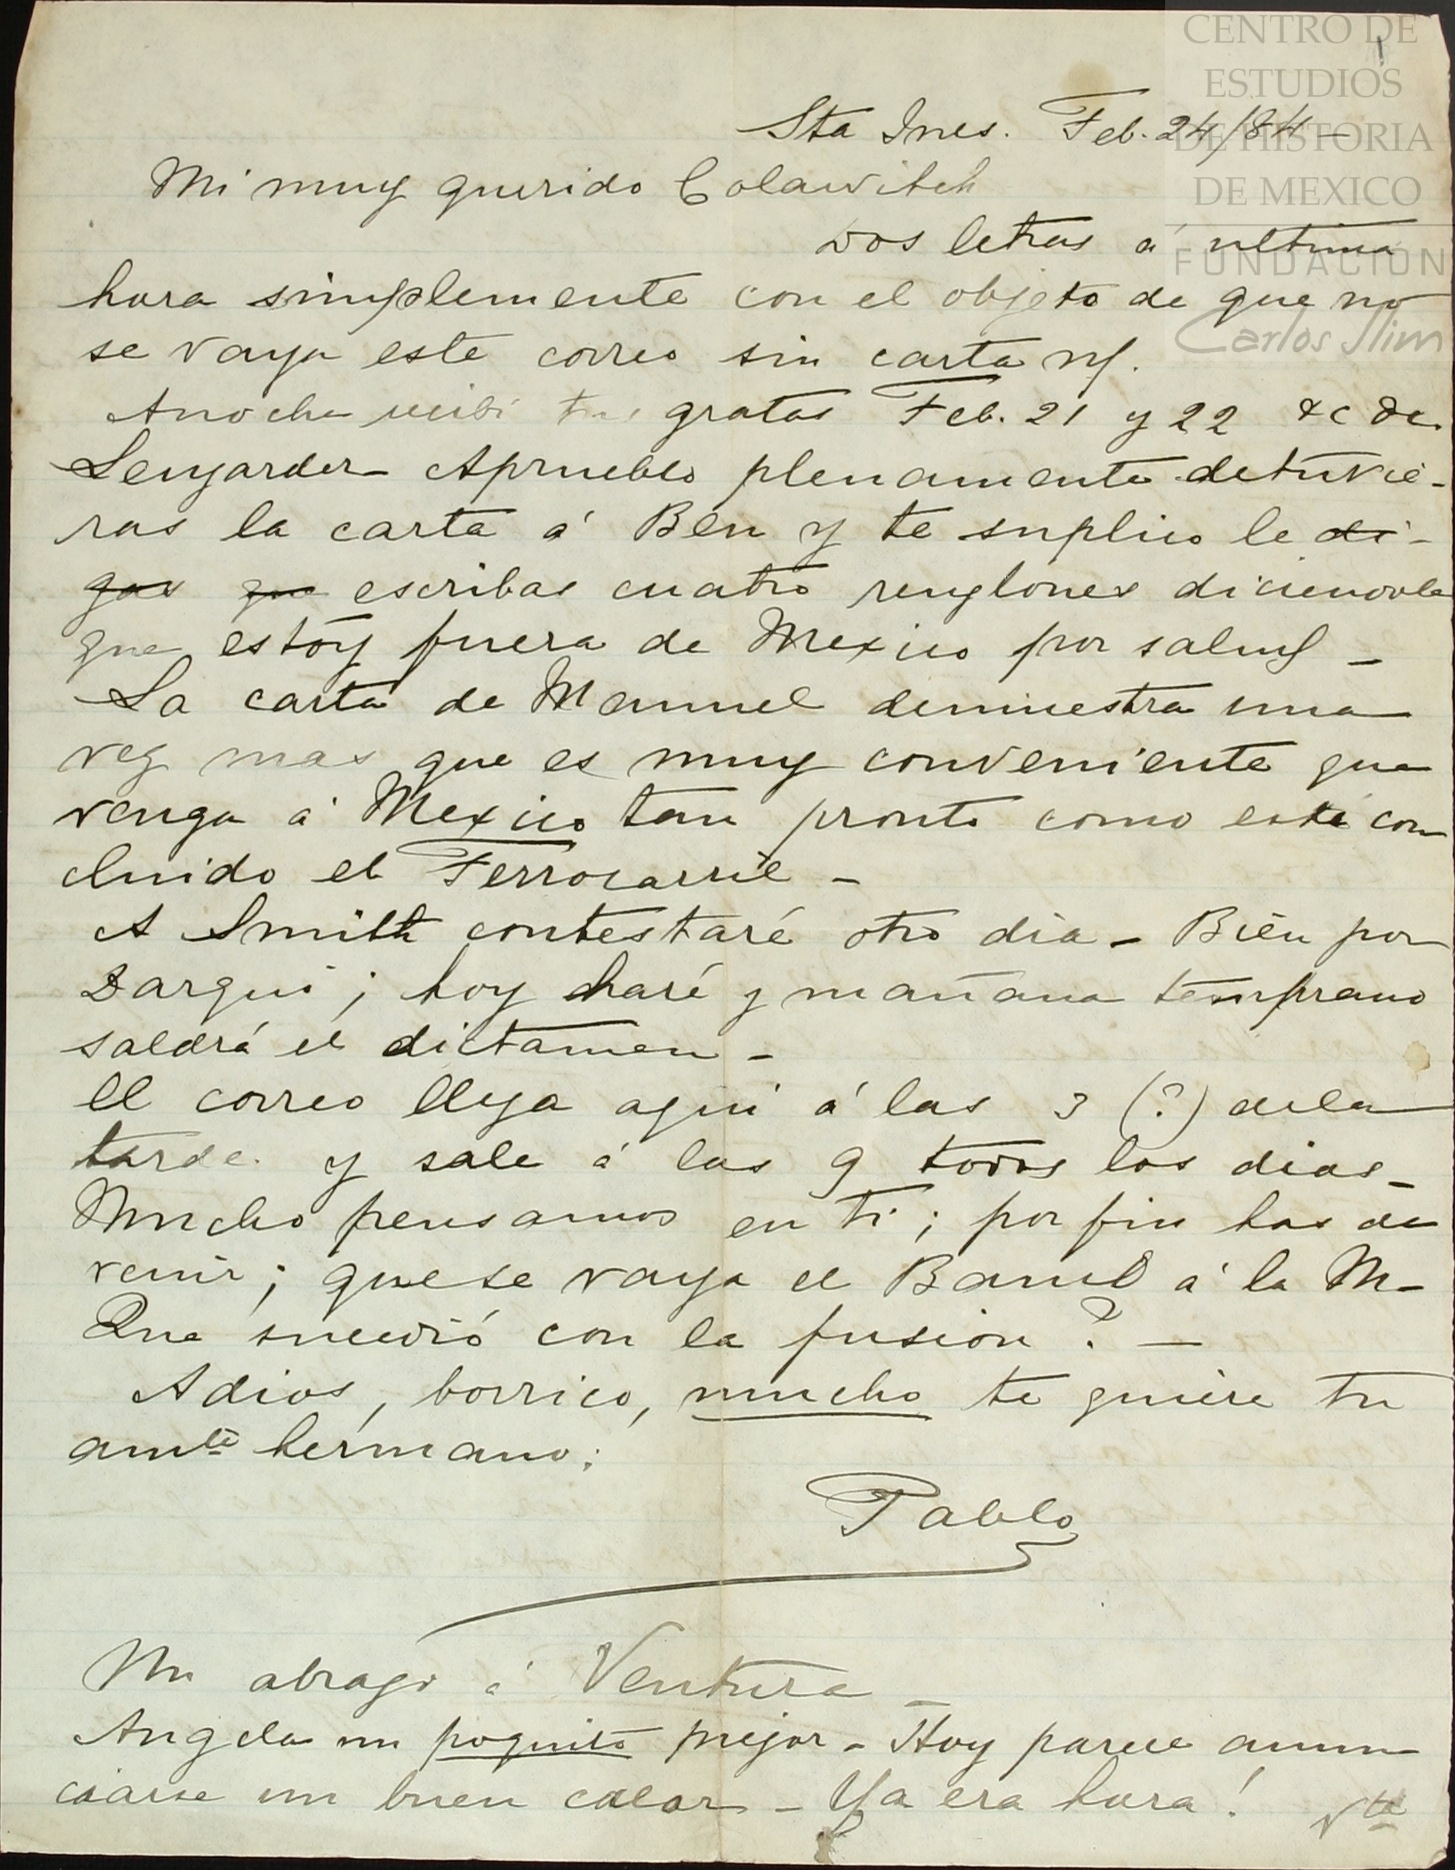 CENTRO DE
ESTUDIOS
DE HISTORIA
DE MEXICO
FUNDACIÓN
Carlos Slim
1
Sta Ines. Feb. 24/84 –
Mi muy querido Colawitch
Dos letras á ultima
hora simplemente con el objeto de que no
se vaya este correo sin carta m/.
Anoche recibí tus gratas Feb. 21 y 22 &c de
Aprueblo plenamente detuvie-
ras la carta á Ben y te suplico le di-
gas que escribas cuatro renglones diciendole
que estoy fuera de Mexico por salud –
La carta de Manuel demuestra una
vez mas que es muy conveniente que
venga á Mexico tan pronto como esté con
cluido el Ferrocarril –
A Smith contestaré otro dia – Bien por
Dargui; hoy haré y mañana temprano
saldrá el dictamen –
El correo llega aqui á las 3 (?) dela
tarde. y sale á las 9 todos los dias –
Mucho pensamos en ti; por fin has de
venir; que se vaya el Baml á la M–
Que sucedió con la fusion? –
Adios, borrico, mucho te quiere tu
amte hermano:
Pablo
Un abrazo á Ventura –
Angela un poquito mejor – Hoy parece anun
ciarse un buen calor – Ya era hora! Vta